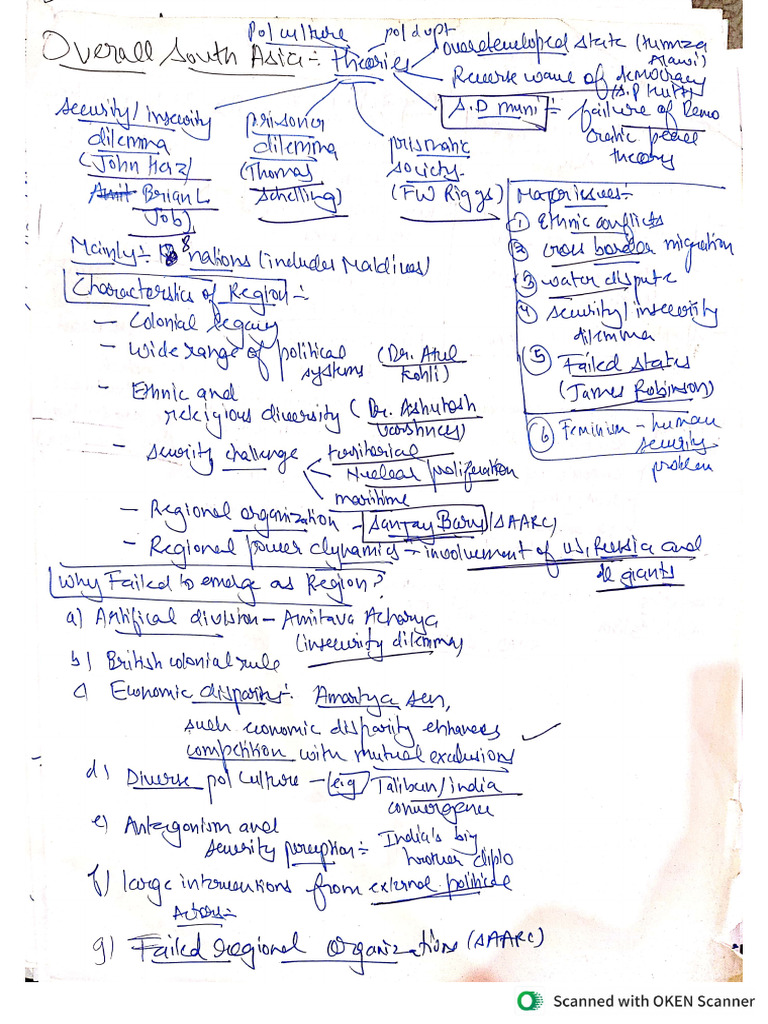 Pol culture
pol dvpt
Overdeveloped state (Humza Alawi)
Overall South Asia :- theories
Reverse wave of democracy (S.P Hutty)
S.D muni :- failure of Democratic peace theory
Security/insecurity dilemma (John Herz/ Brian L. Job)
prisoner dilemma (Thomas Schelling)
prismatic society (FW Riggs)
Major issues :-
① Ethnic conflicts
② cross border migration
③ water dispute
④ security/insecurity dilemma
⑤ Failed states (James Robinson)
⑥ Feminism - human security problem
Mainly :- 8 nations (includes Maldives)
Characterstics of Region :-
- Colonial legacy
- wide range of political systems (Dr. Atul Kohli)
- Ethnic and religious diversity (Dr. Ashutosh Varshney)
- security challenge
territorial
Nuclear proliferation
maritime
- Regional organization - Sanjay Baru (SAARC)
- Regional power dynamics - involvement of US, Russia and giants
Why Failed to emerge as Region?
a) Artifical division - Amitava Acharya
(insecurity dilemma)
b) British colonial rule
c) Economic disparities :- Amartya sen,
such economic disparity enhances
competition with mutual exclusions
d) Diverse pol culture - (eg) Taliban/india
convergence
e) Antagonism and
security perception :- India's big
brother diplo
f) large interventions from external political
Actors :-
g) Failed regional Organizations (SAARC)
Scanned with OKEN Scanner